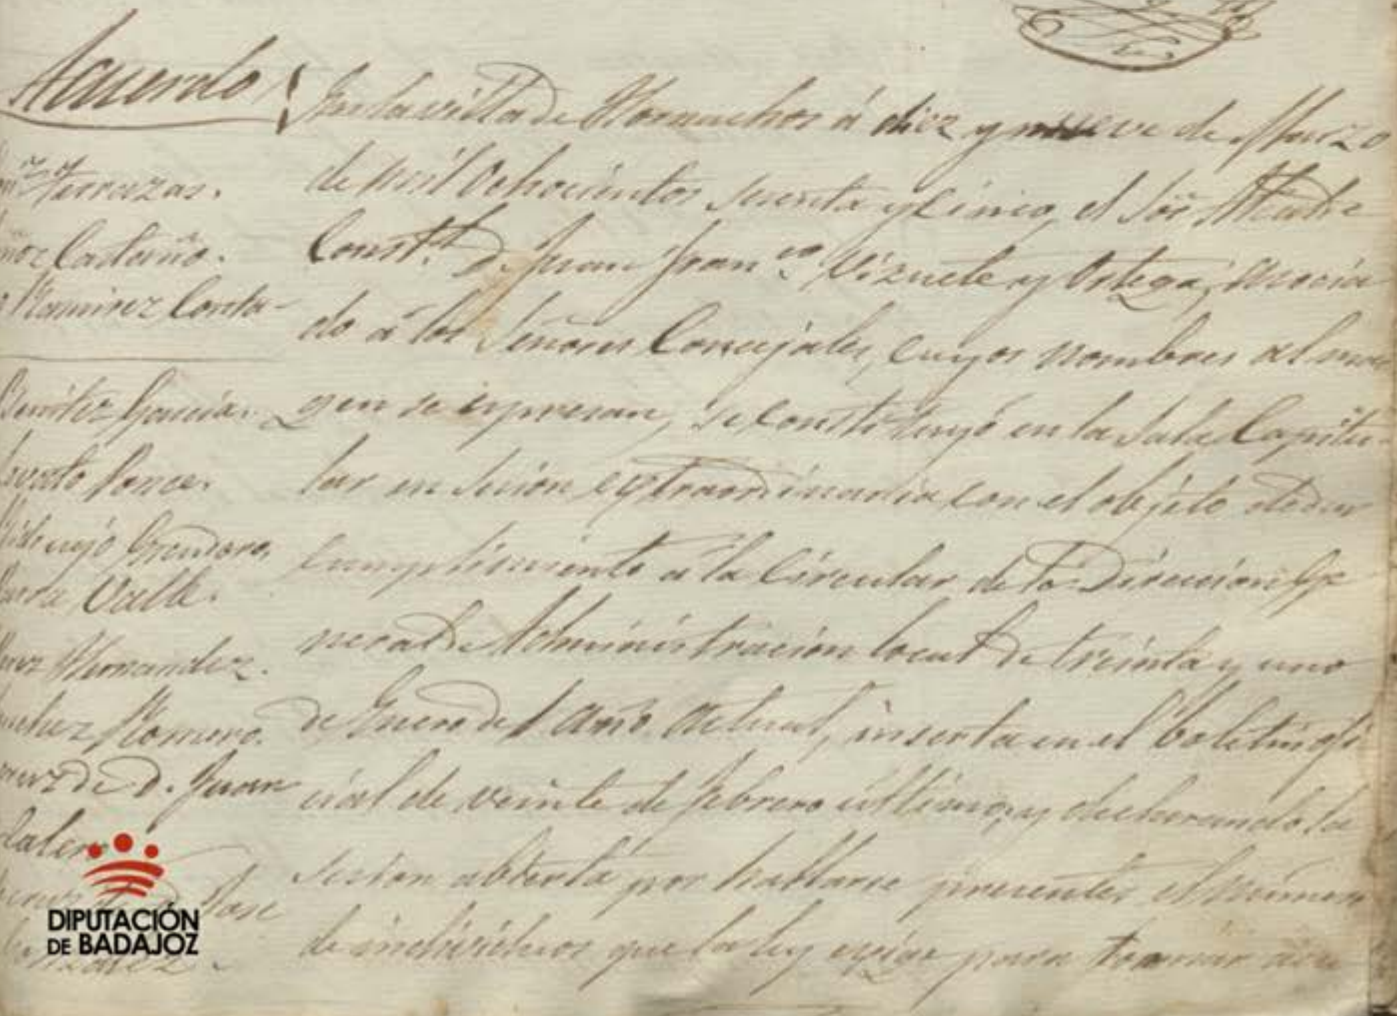 Acuerdo
Terrazas.
Castaño.
Ramirez Conta-
Benitez Garcia.
Ponce.
Valle.
Hernandez.
Romero.
de D. Juan
Jose
En la villa de Hornachos á diez y nueve de Marzo
de mil ochocientos sesenta y cinco, el Sor. Alcalde
Constl. D. Juan Franco. Vizuete y Ortega, asocia
do á los Señores Concejales, cuyos nombres al mar
gen se espresan, se constituyó en la Sala Capitu-
lar en sesion extraordinaria con el objeto de dar
cumplimiento á la circular de la Direccion Ge
neral de Administracion local de treinta y uno
de Enero del año actual, inserta en el boletin ofi
cial de veinte de febrero ultimo, y declarando la
sesion abierta por hallarse presentes el número
de individuos que la ley exige para tomar acu
DIPUTACIÓN
DE BADAJOZ